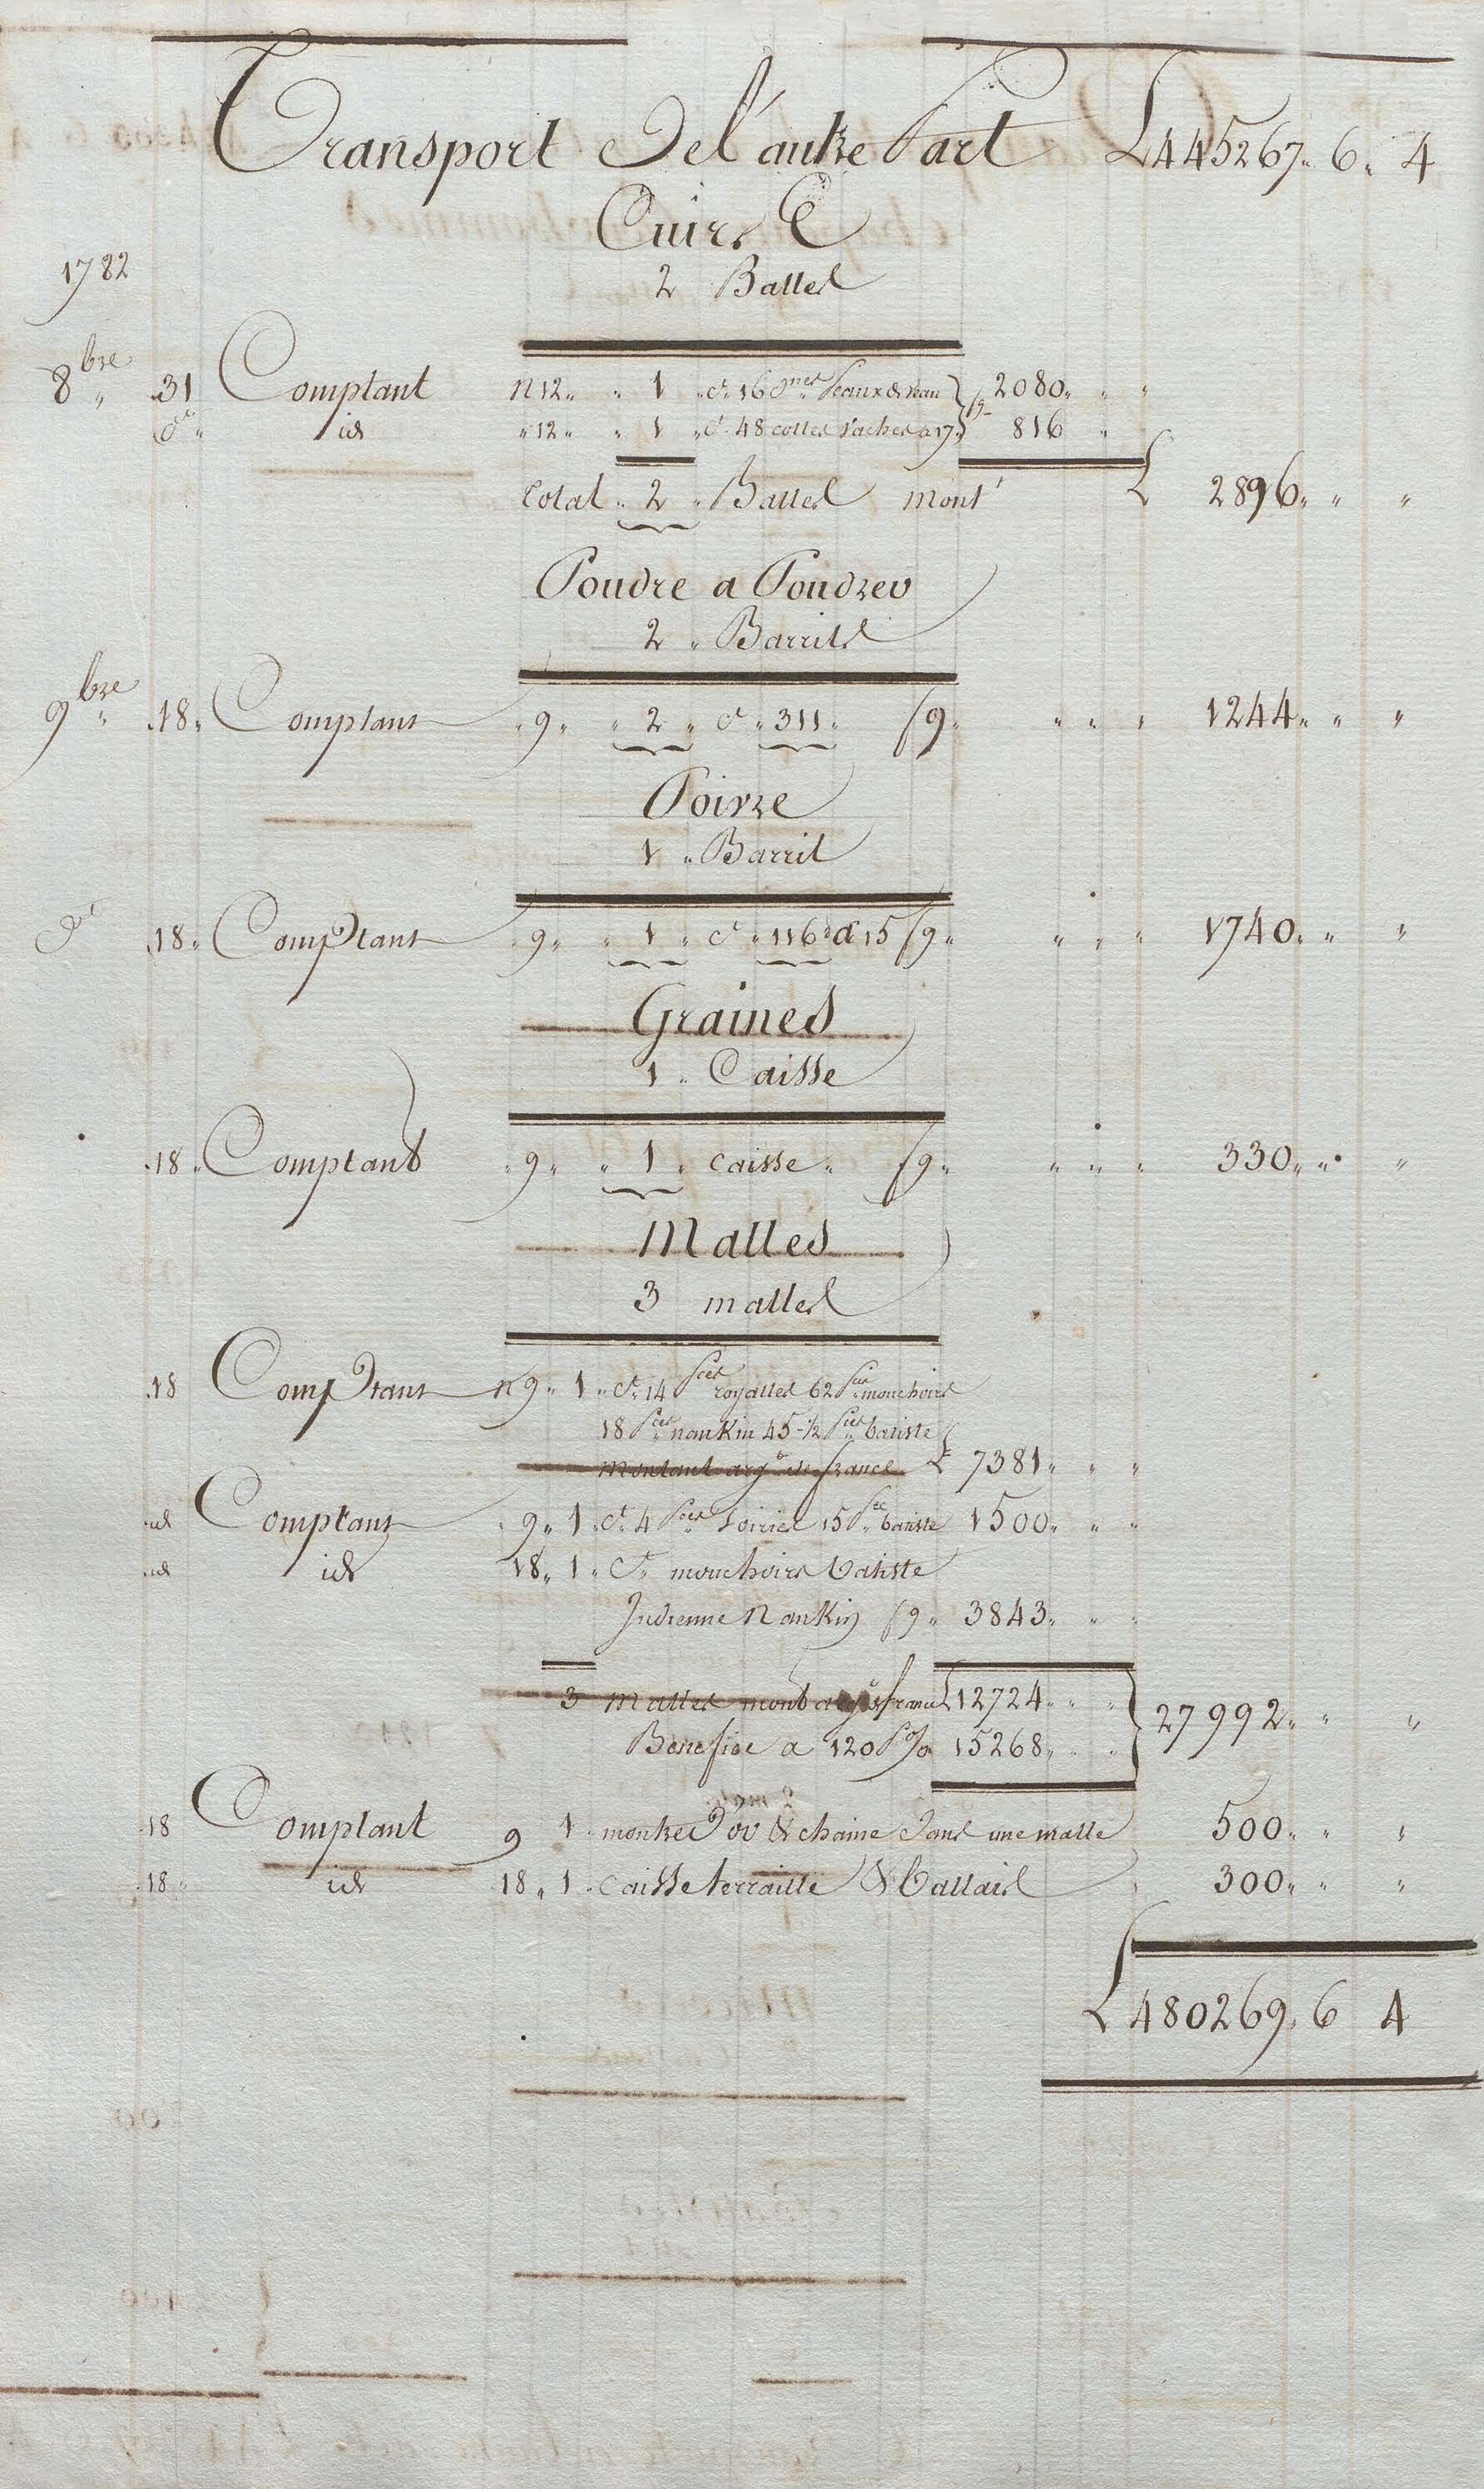 Transport De l'autre Part £ 445267 „ 6 „ 4
Cuirs &
1782
2 Balles
8bre „ 31 Comptant N 12 „ „ 1 „ ct 16 dnes Peaux de veau } fg 2080 „ „ „
do „ id „ 12 „ „ 1 „ ct 48 cottes vaches a 17 „ } 816 „
Total „ 2 „ Balles mont £ 2896 „ „ „
Poudre a Poudrer
2 „ Barrils
9bre „ 18 „ Comptant „ 9 „ „ 2 „ ct „ 311 „ fg „ „ „ „ 1244 „ „ „
Poivre
1 „ Barril
do 18 „ Comptant „ 9 „ „ 1 „ ct „ 116 d a 15 fg „ „ „ „ 1740 „ „ „
Graines
1 „ Caisse
18 „ Comptant „ 9 „ „ 1 „ caisse „ fg „ „ „ „ 330 „ „ „
Malles
3 malles
18 Comptant N 9 „ 1 „ ct 14 Pces royalles 62 Pces mouchoirs
18 Pces nankin 45-1/2 Pces batiste
Montant argt de france £ 7381 „ „ „
id Comptant „ 9 „ 1 „ ct 4 Pces soiries 15 Pces batiste 1500 „ „ „
id id 18 „ 1 „ ct mouchoirs batiste
Indienne Nankin fg „ 3843 „ „ „
3 Malles mont argt de france £ 12724 „ „ „ } 27992 „ „ „
Benefice a 120 P% 15268 „ „ „
18 Comptant 9 1 montre d'or & chaine dans une malle 500 „ „ „
18 „ id 18 „ 1 „ Caisse terraille & Ballais 300 „ „ „
£ 480269 „ 6 4